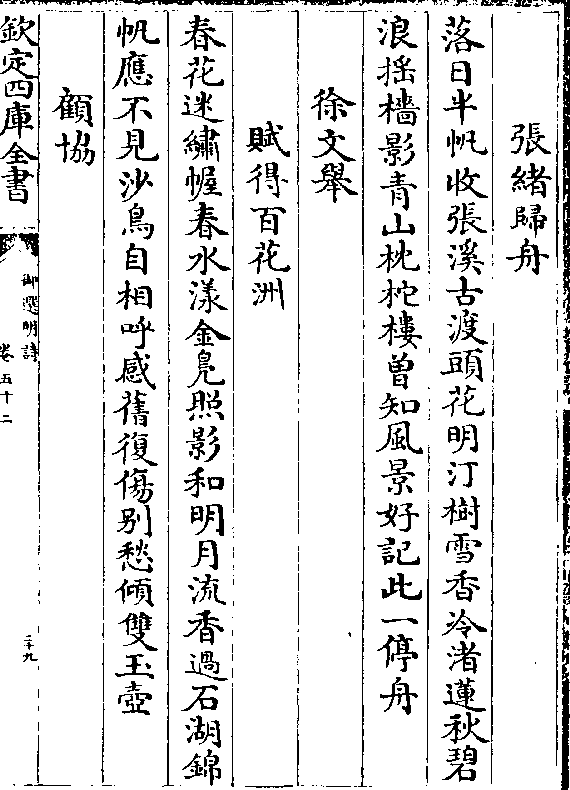 張緒歸舟
落日半帆收張溪古渡頭花明汀樹雪香冷渚蓮秋碧
浪揺檣影青山枕柁樓曽知風景好記此一停舟
徐文舉
賦得百花洲
春花迷繡幄春水漾金鳬照影和明月流香過石湖錦
帆應不見沙鳥自相呼感舊復傷别愁傾雙玉壺
顧協
欽定四庫全書
御選明詩
卷五十二
二十九